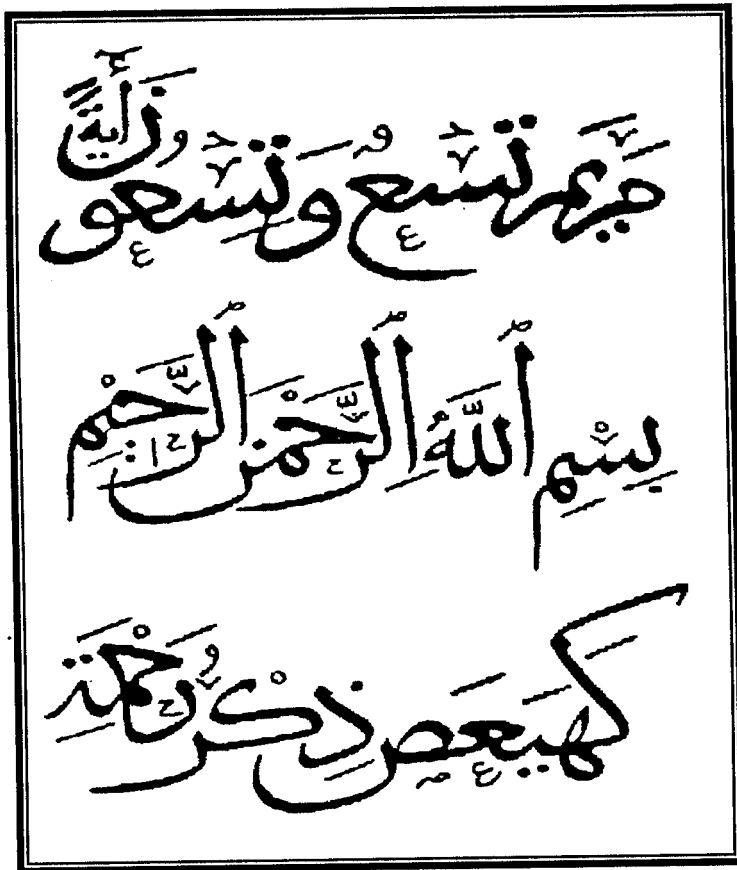 مَرْيَمَ تِسْعٌ وَتِسْعُونَ أيَةً
بِسْمِ اللَّهِ الرَّحْمَنِ الرَّحِيمِ
كَهيعَصَ ذِكْرُ رَحْمَتِ